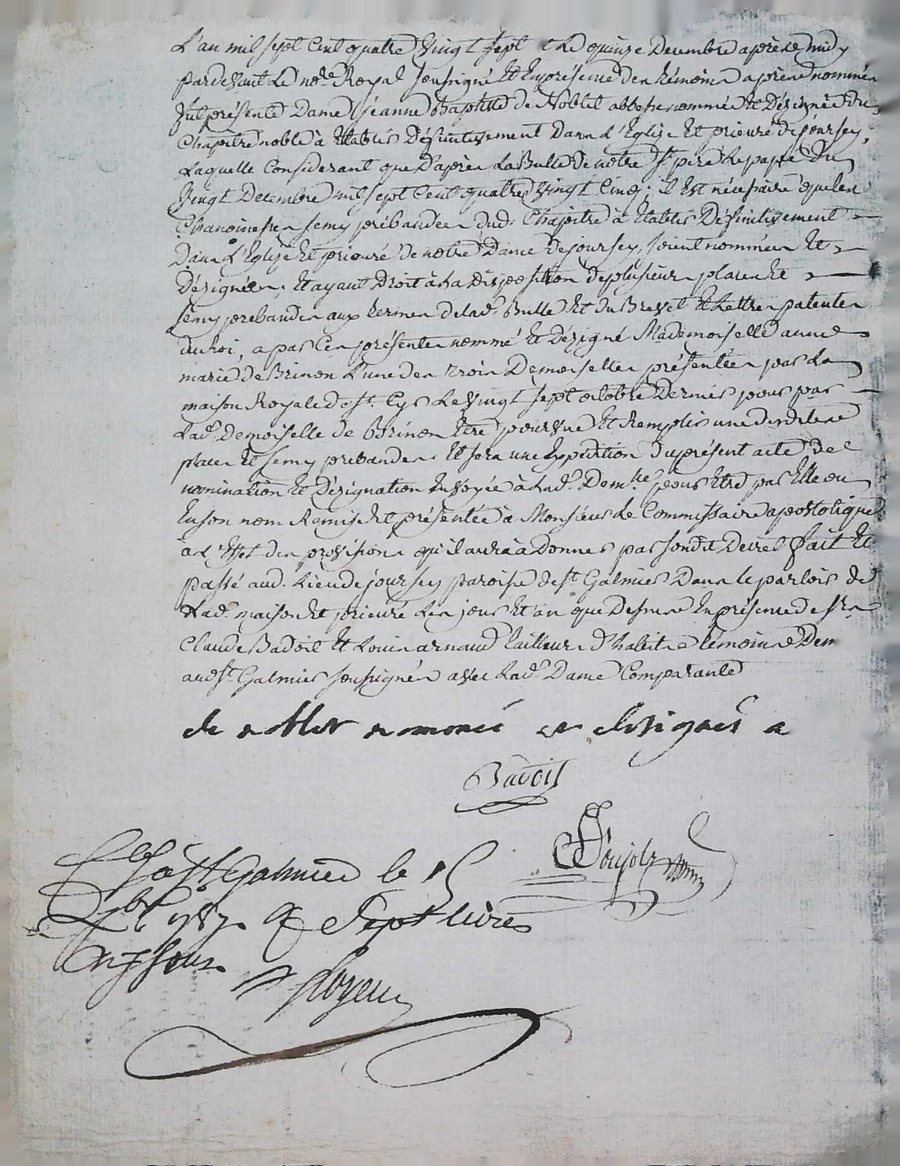 L'an mil sept Cent quatre Vingt sept & le quinze Decembre après midy
pardevant le no.re Royal soussigné Et En présence des témoins après nommés
fut présente Dame Jeanne Baptiste de Noblet abbesse nommée Et Désignée du
Chapitre noble à Etablir Définitivement Dans L'Eglise Et prieuré de joursey,
Laquelle Considérant que D'après La Bulle de notre St. père le pape Du
Vingt Decembre mil sept Cent quatre Vingt Cinq; il Est nécessaire que les
Chanoinesses semy prébandées dud. Chapitre à Etablir Définitivement
Dans L'Eglise Et prieuré de notre Dame de joursey, soient nommées Et
Désignées. Et ayant Droit à la Disposition de plusieurs places Et
semy prébandes aux termes de lad. Bulle Et du Brevet Et Lettres patentes
du Roi, a par Ces présentes nommé Et Désigné Mademoiselle anne
marie de Brinon L'une des trois Demoiselles présentées par La
maison Royale de st. Cyr le vingt sept octobre Dernier pour par
Lad. Demoiselle de Brinon Etre pourvue Et Remplir une desdites
places Et semy prebandes. Et sera une Expédition du présent acte de
nomination Et Désignation Envoyée à Lad. Dem.lle pour Etre par Elle ou
En son nom Remise Et présentée à Monsieur Le Commissaire apostolique
à L'Effet des provisions qu'il aura à Donner par son dit Decret fait Et
passé aud. Lieu de joursey paroisse de st. Galmier Dans le parloir de
Lad. maison Et prieuré Les jour Et an que Dessus En présence de srs.
Claude Badoil Et Louis arnaud tailleur d'habits témoins Dem
aud. st. Galmier soussignés avec Lad. Dame Comparante
de noblet nommée et designée a
Badoil
Poujolz
à St. Galmier le 15
Xbre 1787. R Sept livres
Dix sous